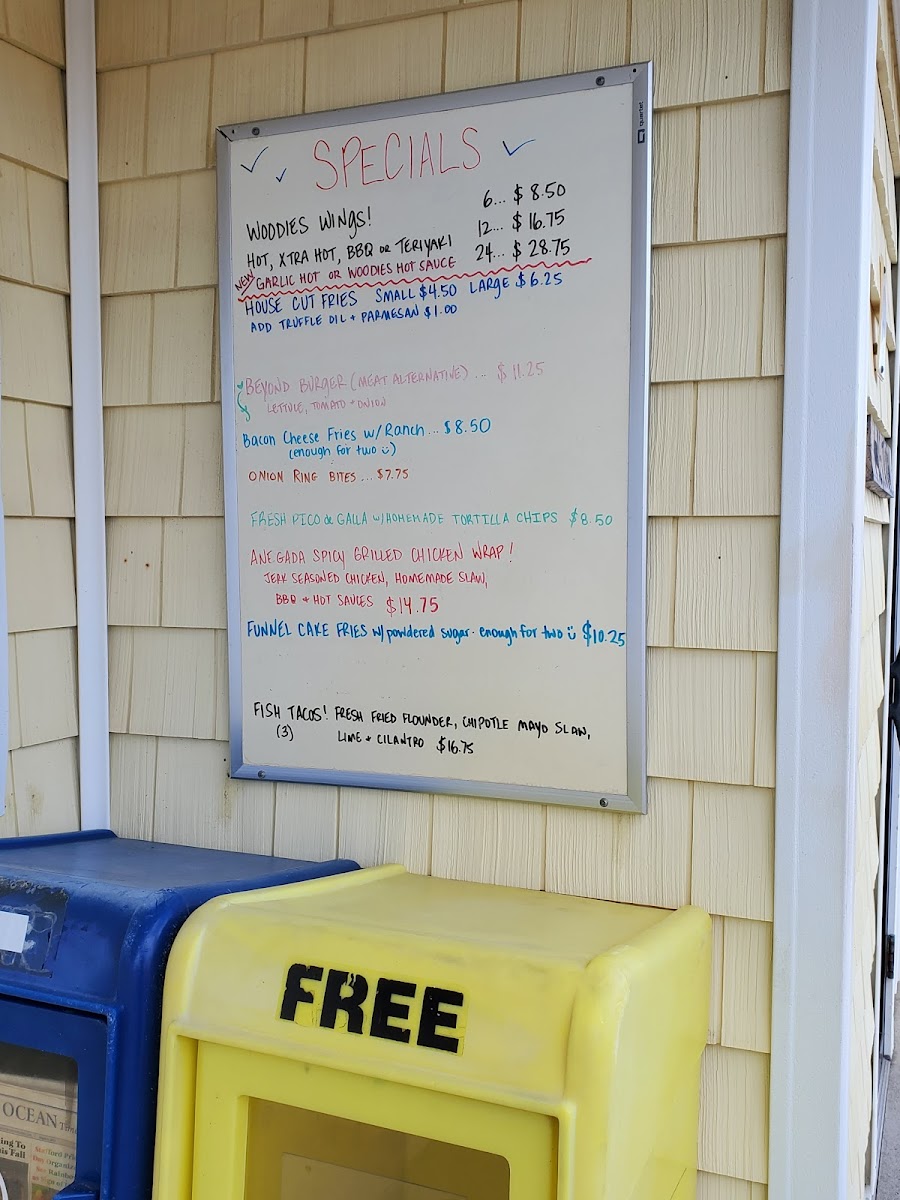 quartet
SPECIALS
WOODIES WINGS! 6... $8.50
12... $16.75
HOT, XTRA HOT, BBQ OR TERIYAKI 24... $28.75
NEW GARLIC HOT OR WOODIES HOT SAUCE
HOUSE CUT FRIES SMALL $4.50 LARGE $6.25
ADD TRUFFLE OIL + PARMESAN $1.00
BEYOND BURGER (MEAT ALTERNATIVE)... $11.25
LETTUCE, TOMATO + ONION
Bacon Cheese Fries w/ Ranch... $8.50
(enough for two ☺)
ONION RING BITES... $7.75
FRESH PICO de GALLA w/HOMEMADE TORTILLA CHIPS $8.50
ANEGADA SPICY GRILLED CHICKEN WRAP!
JERK SEASONED CHICKEN, HOMEMADE SLAW,
BBQ + HOT SAUCES $14.75
FUNNEL CAKE FRIES w/ powdered sugar. enough for two ☺ $10.25
FISH TACOS! FRESH FRIED FLOUNDER, CHIPOTLE MAYO SLAW,
(3) LIME + CILANTRO $16.75
FREE
OCEAN